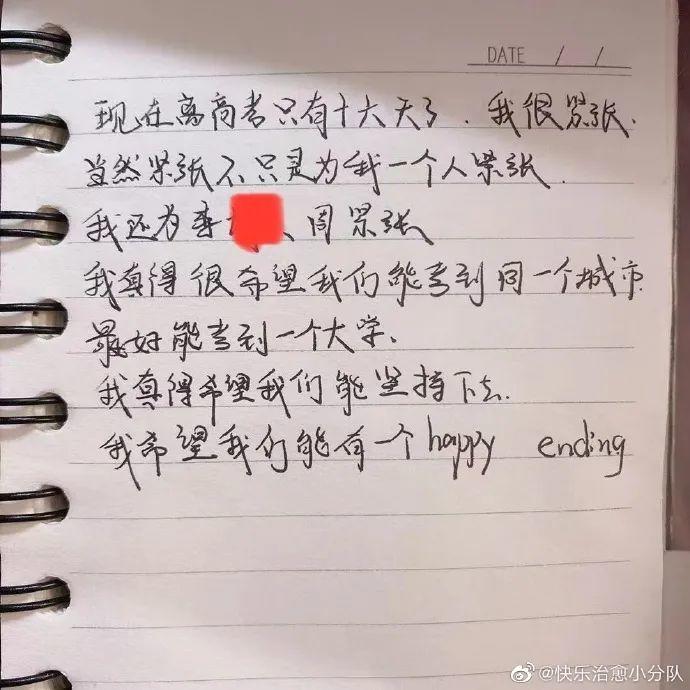 DATE / /
现在离高考只有十六天了.我很紧张.
当然紧张不只是为我一个人紧张.
我还为 周紧张
我真得很希望我们能考到同一个城市
最好能考到一个大学.
我真得希望我们能坚持下去.
我希望我们能有一个happy ending
@快乐治愈小分队